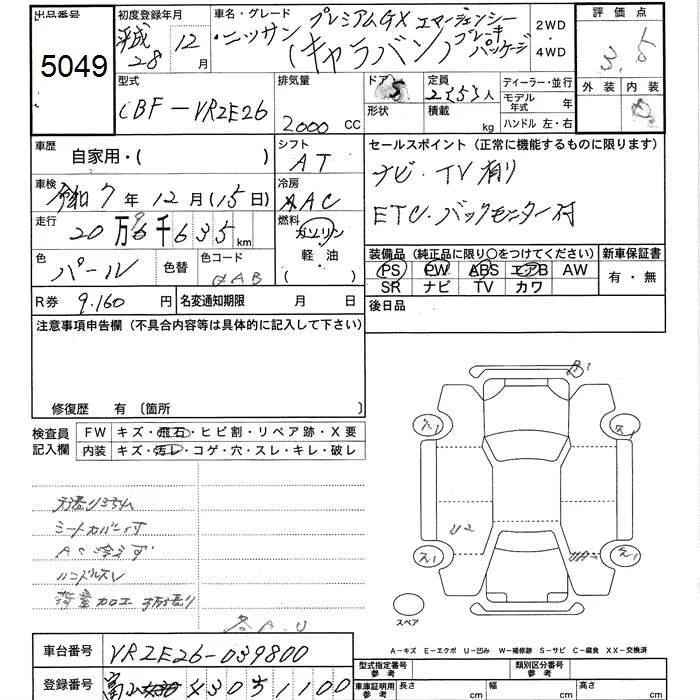 出品番号 初度登録年月 車名・グレード 評価点
5049
平成28 年 12月
ニッサン (キャラバン) プレミアムGX エマージェンシーブレーキパッケージ
2WD・4WD
3.5
外装 内装
型式 排気量 ドア 形状 定員 積載 ディーラー・並行
CBF-VR2E26 2000 CC 5 人 kg モデル年式 年
ハンドル 左・右
車歴 シフト セールスポイント (正常に機能するものに限ります)
自家用・( ) AT
ナビ・TV 有り
車検 冷房
令和 7 年 12 月 (15 日) AAC
ETC・バックモニター付
走行 燃料
20 万 千 635 km ガソリン・軽油
装備品 (純正品に限り○をつけてください) 新車保証書
色 パール 色替 色コード QAB
PS PW ABS エアB AW 有・無
SR ナビ TV カワ
R券 9.160 円 名変通知期限 月 日
後日品
注意事項申告欄 (不具合内容等は具体的に記入して下さい)
修復歴 有 〔箇所 〕
検査員記入欄
FW キズ・飛石・ヒビ割・リペア跡・X要
内装 キズ・汚レ・コゲ・穴・スレ・キレ・破レ
シートカバー付
AC冷えず
ハンドルスレ
U2
スペア
A-キズ E-エクボ U-凹み W-補修跡 S-サビ C-腐食 XX-交換済
車台番号 VR2E26-039800
型式指定番号 参考 類別区分番号 参考
登録番号 富山 430 す 1100
車庫証明用 参考 長さ cm 幅 cm 高さ cm